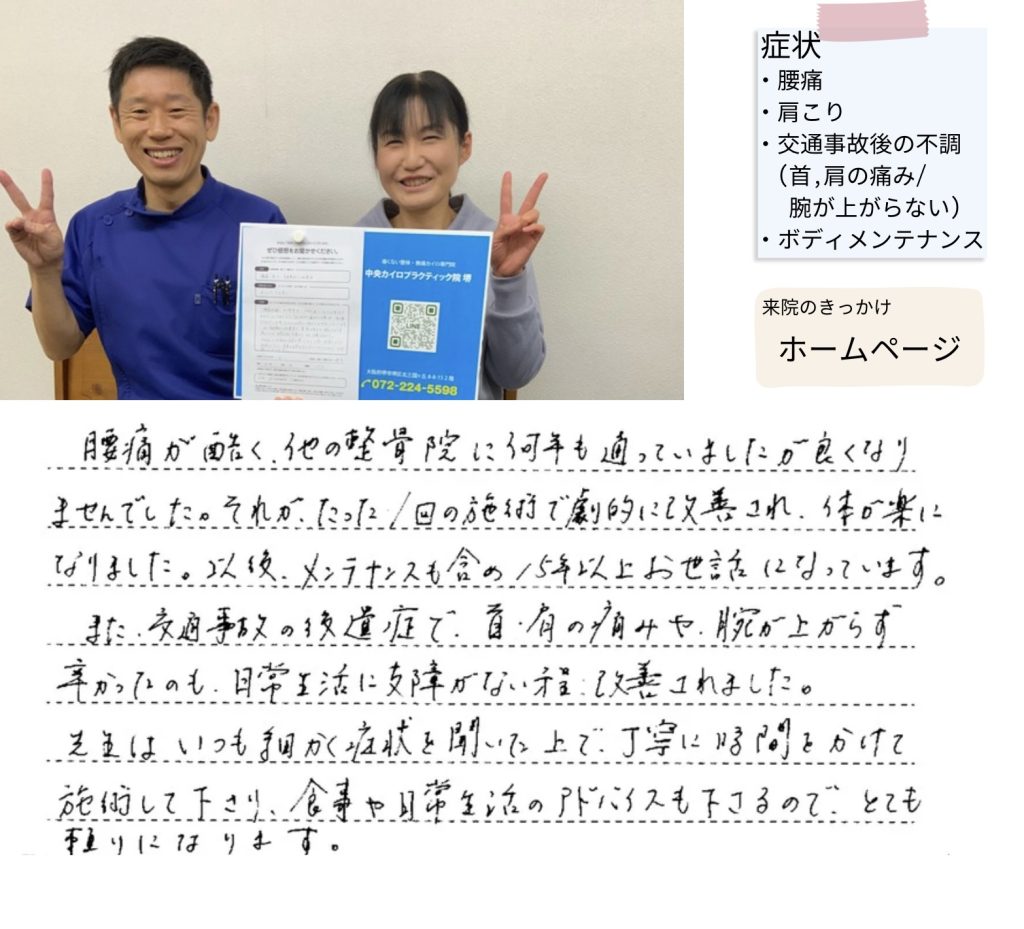 症状
・腰痛
・肩こり
・交通事故後の不調
(首,肩の痛み/
腕が上がらない)
・ボディメンテナンス
来院のきっかけ
ホームページ
ぜひ感想をお聞かせください。
痛くない整体・無痛カイロ専門院
中央カイロプラクティック院 堺
LINE
072-224-5598
腰痛が酷く、他の整骨院に何年も通っていましたが良くなり
ませんでした。それが、たった1回の施術で劇的に改善され、体が楽に
なりました。以後、メンテナンスも含め15年以上お世話になっています。
また、交通事故の後遺症で、首・肩の痛みや、腕が上がらず
辛かったのも、日常生活に支障がない程に改善されました。
先生はいつも細かく症状を聞いた上で、丁寧に時間をかけて
施術して下さり、食事や日常生活のアドバイスも下さるので、とても
頼りになります。